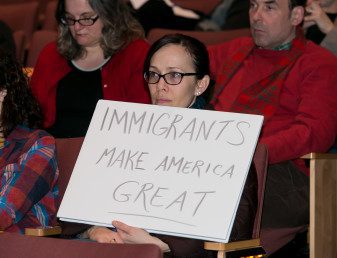 IMMIGRANTS
MAKE AMERICA
GREAT